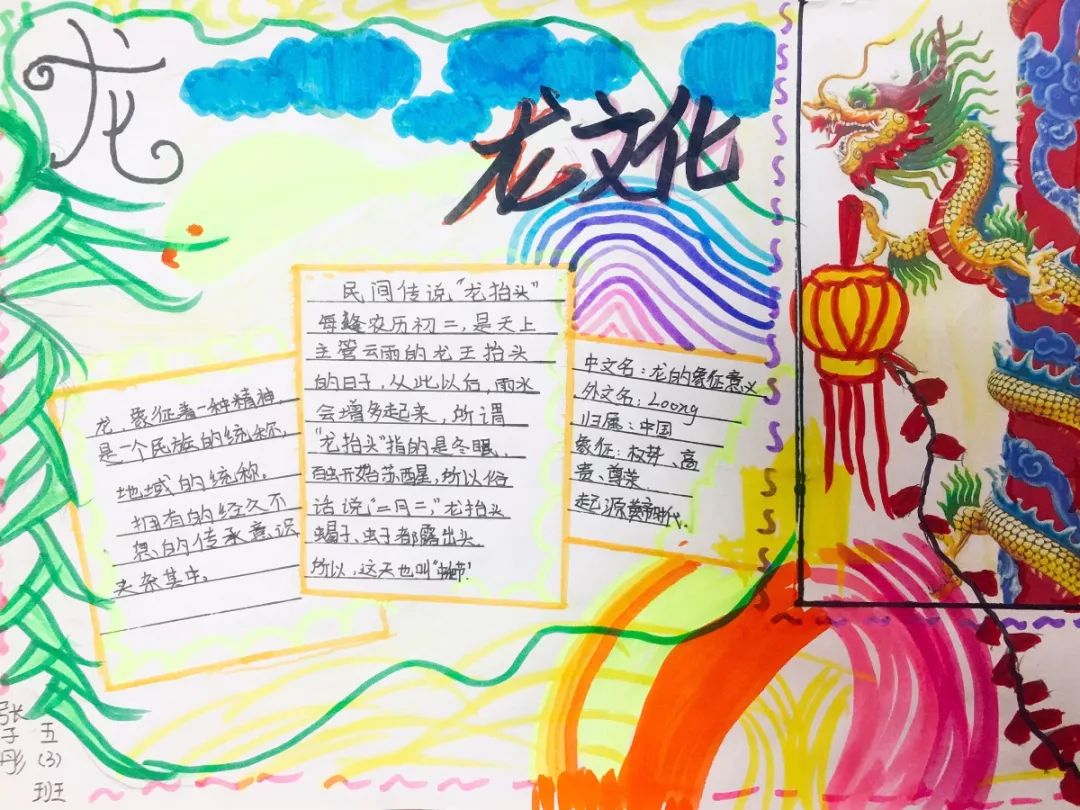 龙
龙文化
龙,象征着一种精神,
是一个民族的统称,
地域的统称,
拥有的经久不
想的传承意识
其中。
民间传说“龙抬头”
每 农历初二,是天上
主管云雨的龙王抬头
的日子,从此以后,雨水
会增多起来,所谓
“龙抬头”指的是冬眠,
开始苏醒,所以俗
话说“二月二”龙抬头
蝎子、虫子都露出头
所以,这天也叫“
中文名:龙的象征意义
外文名:Loong
归属:中国
象征:权势、高
贵、尊荣
起源 时代.
张子彤
五(3)班